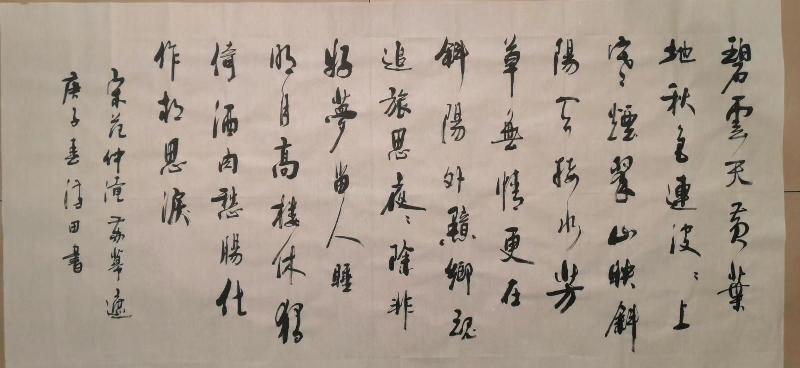 碧雲天黄葉
地秋色連波〻上
寒煙翠山映斜
陽天接水芳
草無情更在
斜陽外黯鄉魂
追旅思夜〻除非
好夢留人睡
明月高樓休獨
倚酒愁腸化
作相思淚
宋范仲淹蘇幕遮
庚子春田書